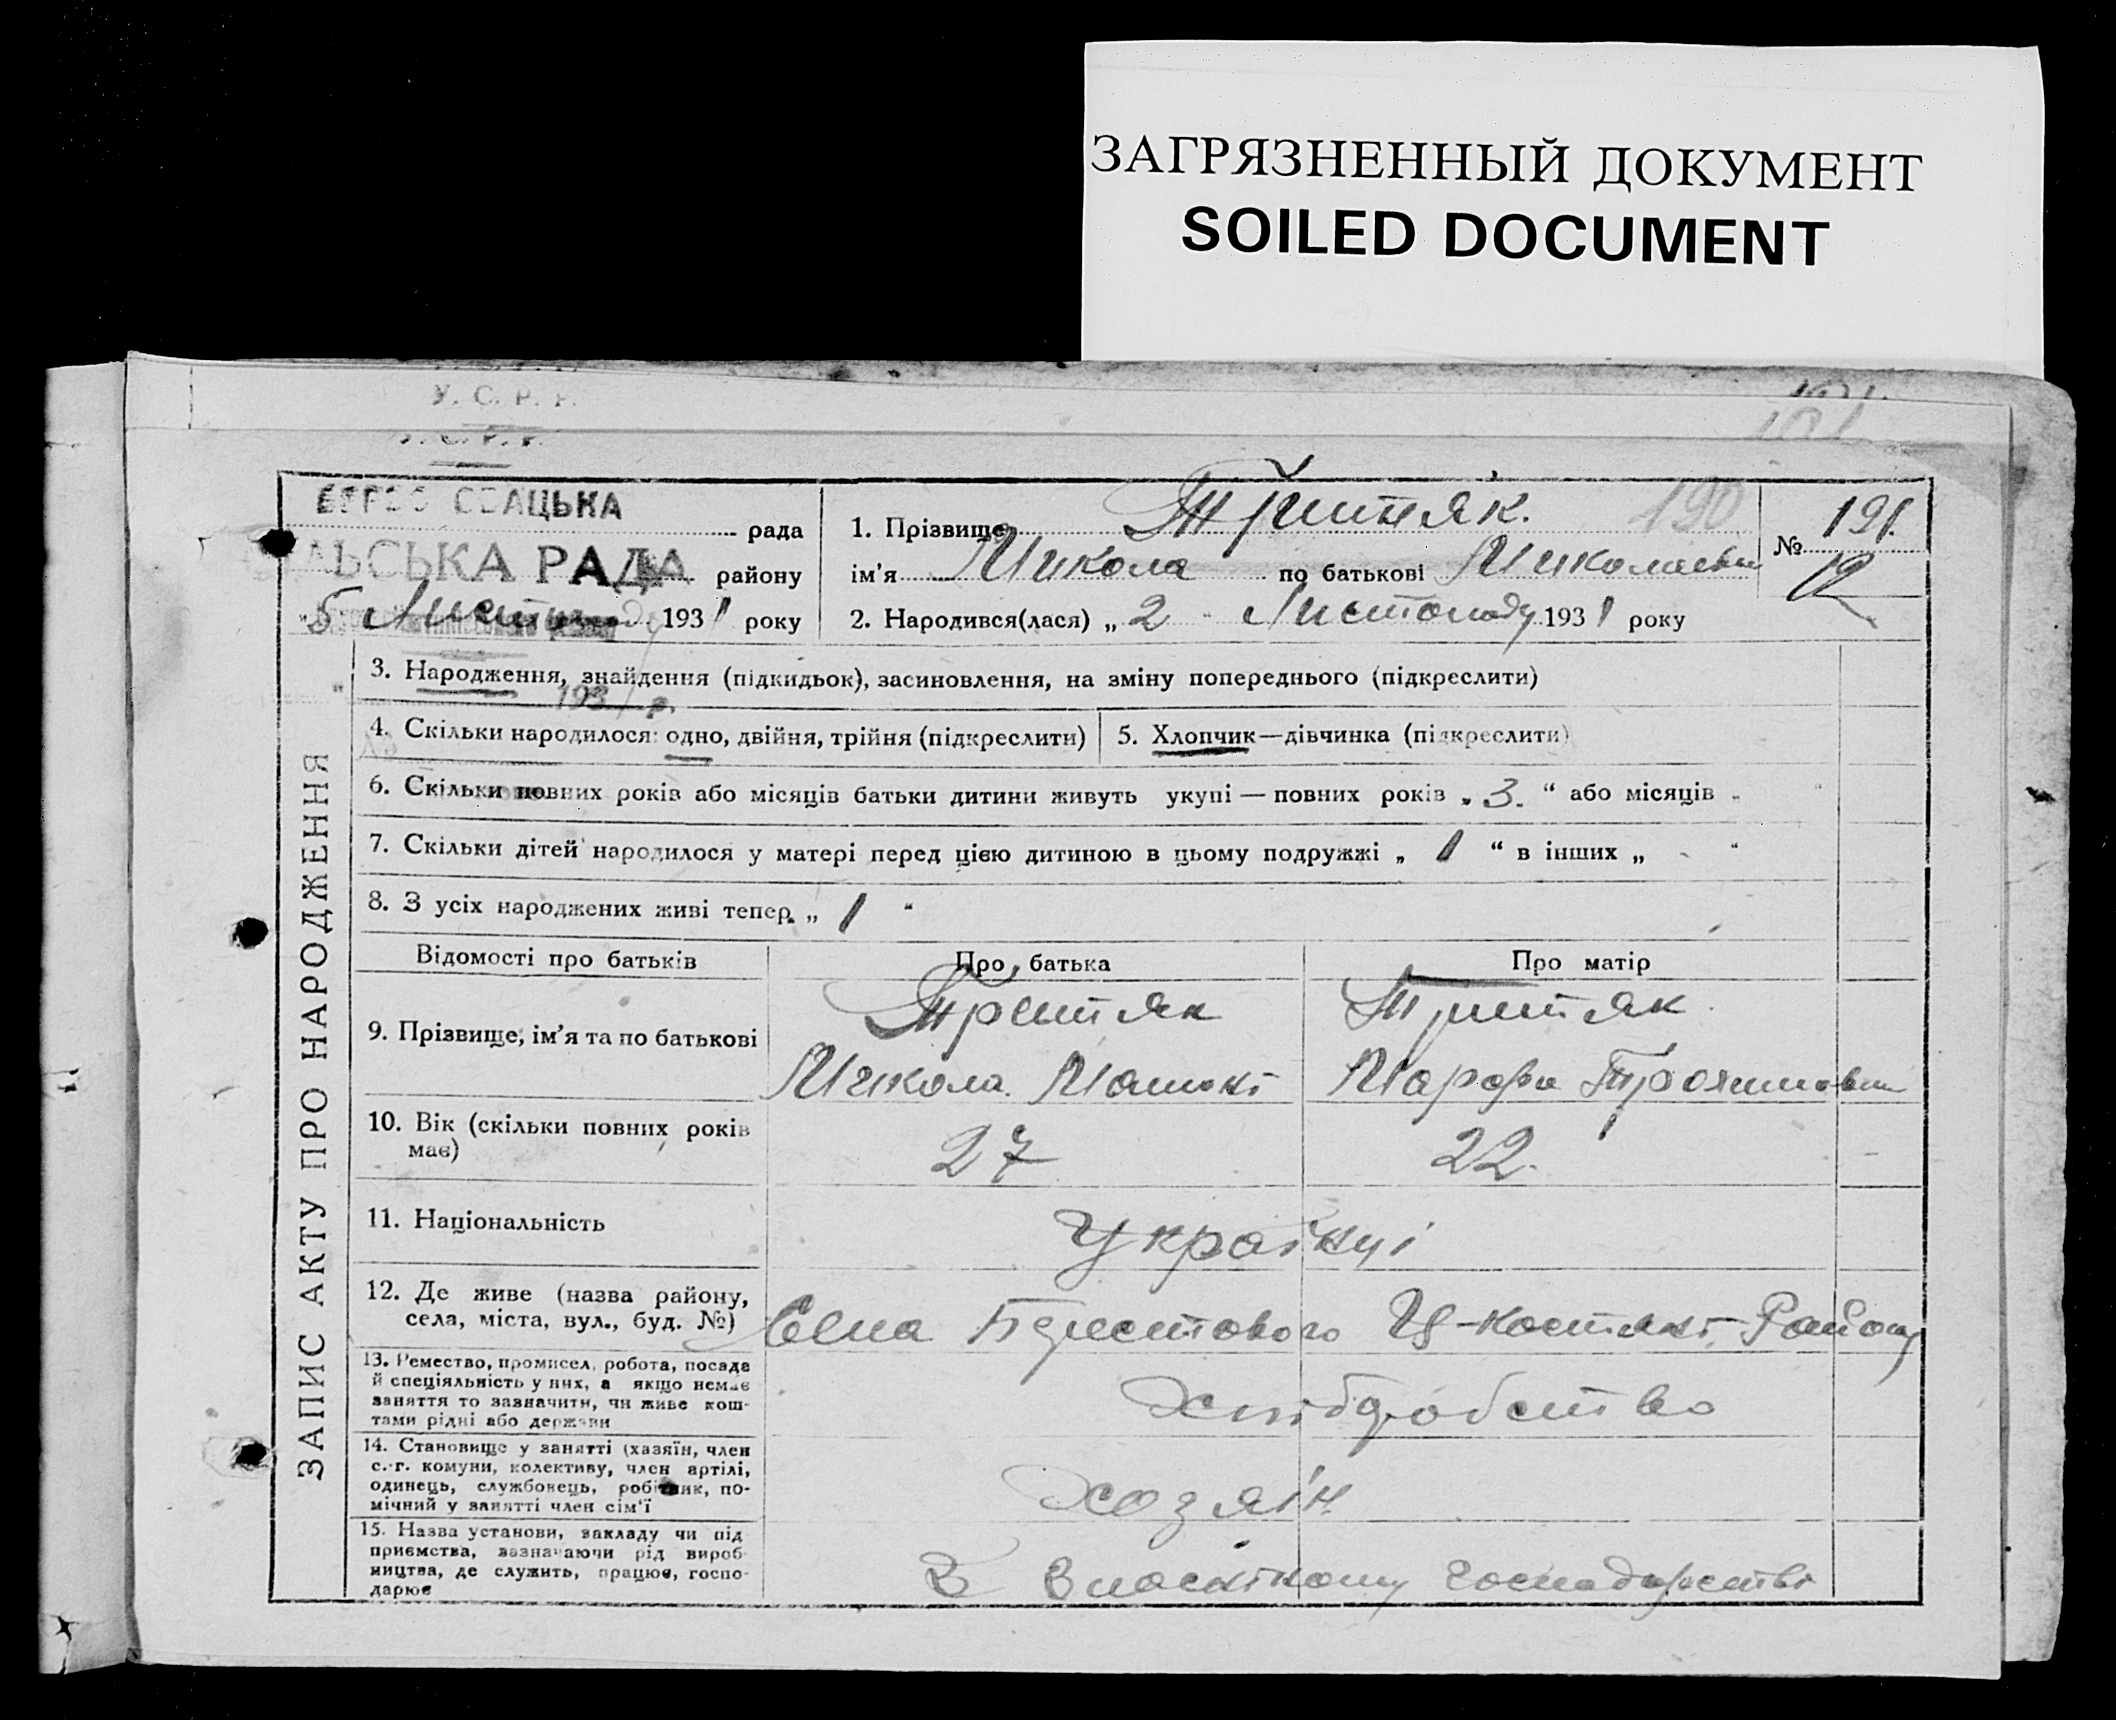 ЗАГРЯЗНЕННЫЙ ДОКУМЕНТ
SOILED DOCUMENT
У. С. Р. Р.
ЗАПИС АКТУ ПРО НАРОДЖЕННЯ
рада
РАДА району
5 Листопад 1931 року
1. Прізвище Третяк. 190
ім'я Микола по батькові Миколаєвич
№ 191.
2. Народився(лася) „ 2 Листопаду 1931 року
3. Народження, знайдення (підкидьок), засиновлення, на зміну попереднього (підкреслити)
193 р.
4. Скільки народилося: одно, двійня, трійня (підкреслити)
5. Хлопчик—дівчинка (підкреслити)
6. Скільки повних років або місяців батьки дитини живуть укупі — повних років „ 3. “ або місяців
7. Скільки дітей народилося у матері перед цією дитиною в цьому подружжі „ 1 “ в інших „ - “
8. З усіх народжених живі тепер „ 1 “
Відомості про батьків Про батька Про матір
9. Прізвище, ім'я та по батькові
Третяк Третяк
Микола Марфа
10. Вік (скільки повних років має) 27 22.
11. Національність Українці
12. Де живе (назва району, села, міста, вул., буд. №) Села Берестового Району
13. Ремество, промисел, робота, посада й спеціяльність у них, а якщо немає заняття то зазначити, чи живе коштами рідні або держави
Хліборобство
14. Становище у занятті (хазяїн, член с.-г. комуни, колективу, член артілі, одинець, службовець, робітник, помічний у занятті член сім'ї
Хозяїн
15. Назва установи, закладу чи підприємства, зазначаючи рід виробництва, де служить, працює, господарює
В власнікому господарстві